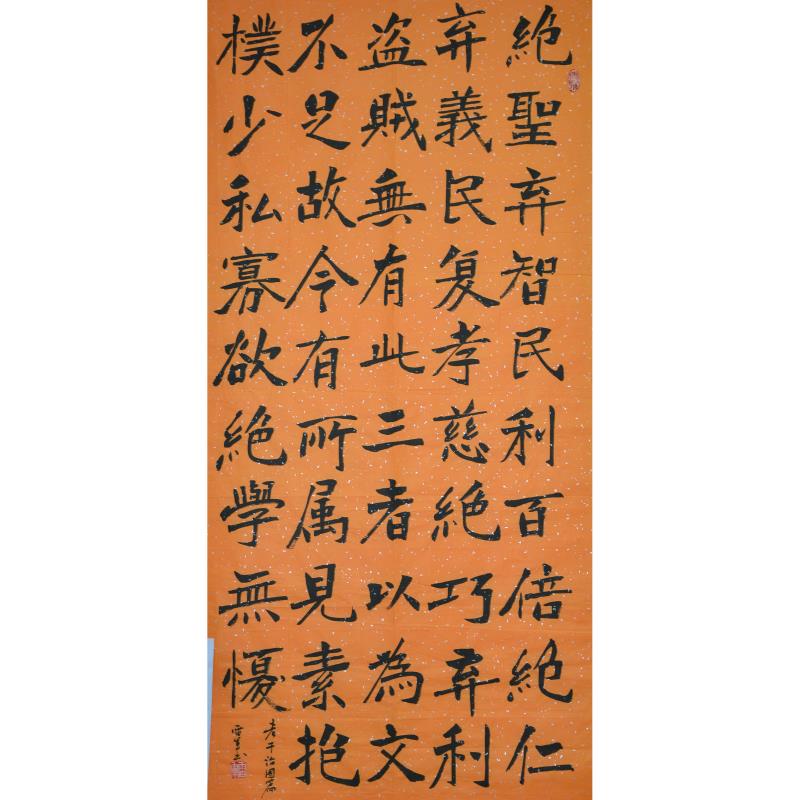 絶聖弃智民利百倍絶仁
弃義民复孝慈絶巧弃利
盗賊無有此三者以為文
不足故今有所属見素抱
樸少私寡欲絶學無憂
老子治國篇